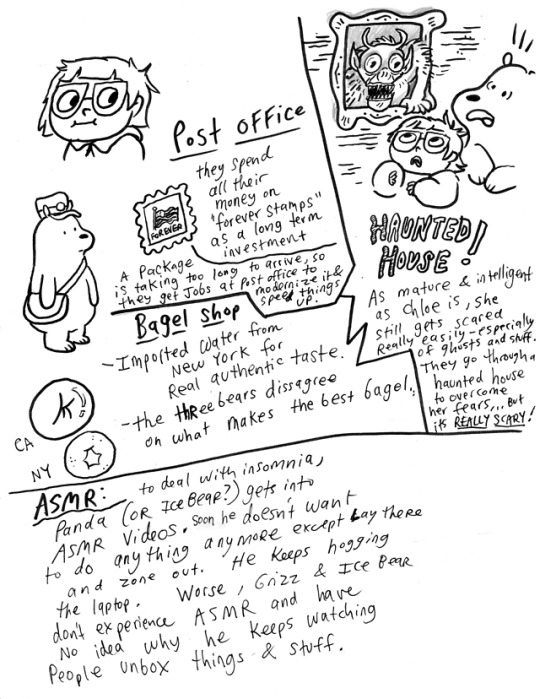 Post office
they spend
all their
money on
"forever stamps"
as a long term
investment
FOREVER
A package
is taking too long to arrive, so
they get Jobs at Post office to
modernize it &
speed things
up.
HAUNTED
HOUSE!
As mature & intelligent
as Chloe is, she
still gets scared
Really easily - especially
of ghosts and stuff.
They go through a
haunted house
to overcome
her fears... But
its REALLY SCARY!
Bagel Shop
- Imported water from
New York for
Real authentic taste.
- the three bears dissagree
on what makes the best bagel.
K
CA
NY
ASMR: to deal with insomnia,
Panda (OR Ice Bear?) gets into
ASMR Videos. Soon he doesn't want
to do anything anymore except Lay there
and zone out. He keeps hogging
the laptop. Worse, Grizz & Ice Bear
don't experience ASMR and have
No idea why he keeps watching
People unbox things & stuff.